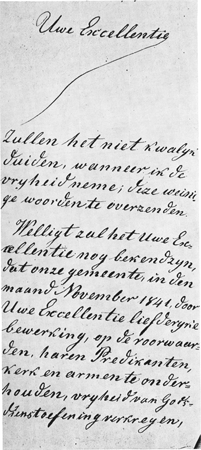 Uwe Excellentie
Zullen het niet kwalijk
duiden, wanneer ik de
vryheid neme, deze weini-
ge woorden te overzenden.
Welligt zal het Uwe Ex-
cellentie nog bekend zyn,
dat onze gemeente, in den
maand November 1841, door
Uwe Excellentie liefderyke
bewerking, op de voorwaar-
den, haren Predikanten,
kerk en armen te onder-
houden, vryheid van Gods-
dienstoefening verkregen,